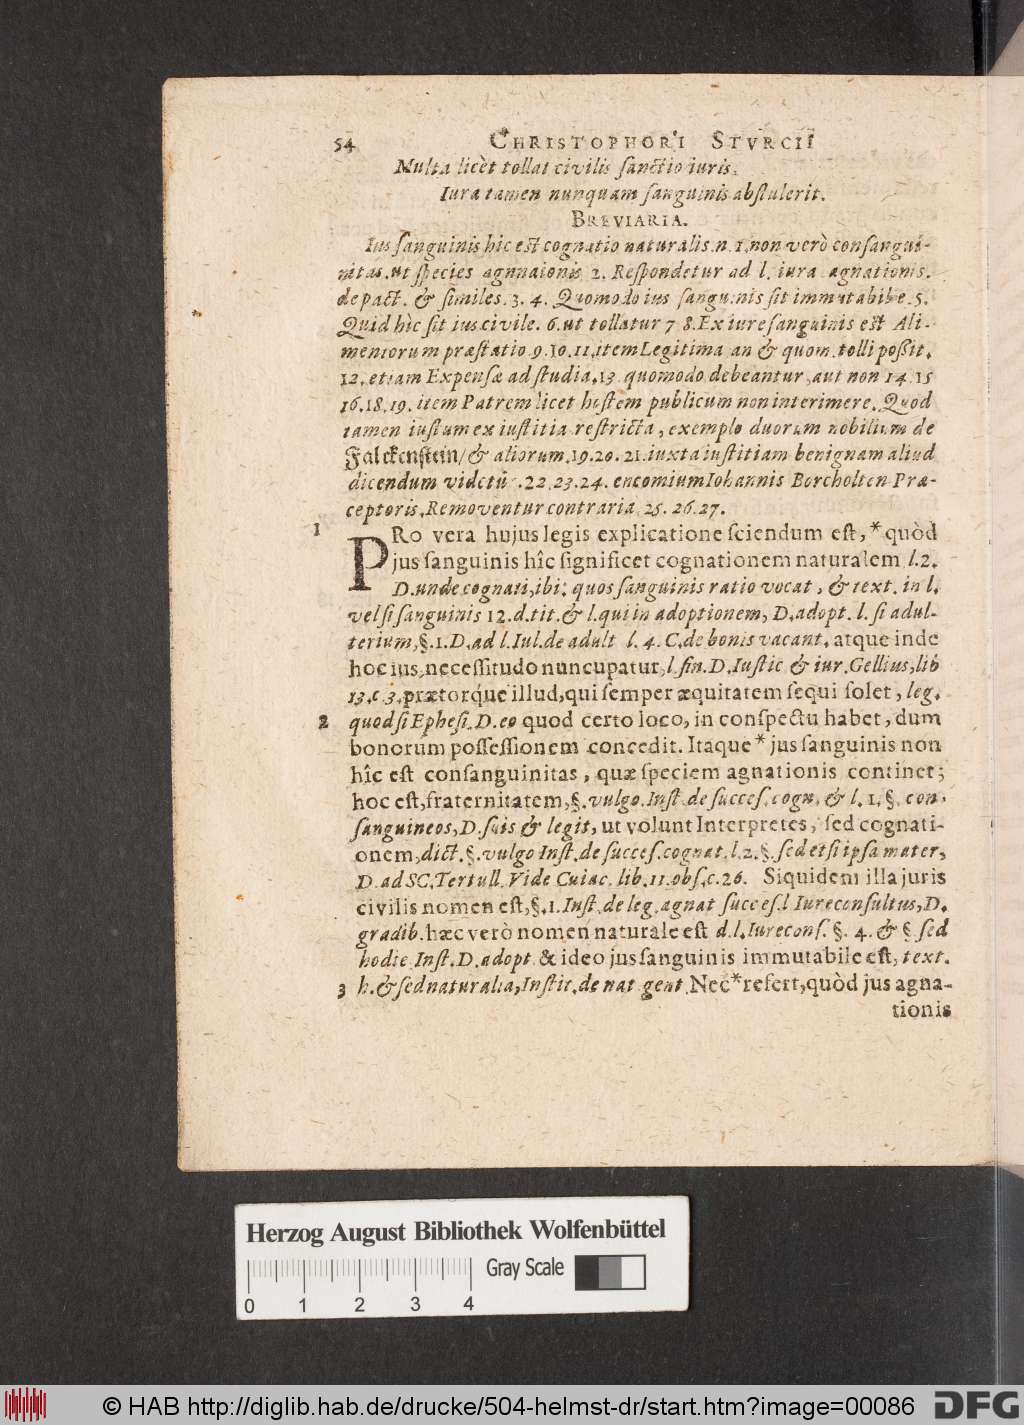 54 CHRISTOPHORI STVRCII
Multa licèt tollat civilis sanctio iuris,
Iura tamen nunquam sanguinis abstulerit.
BREVIARIA.
Ius sanguinis hic est cognatio naturalis. n. 1. non verò consangui-
nitas. ut species agnnaionis 2. Respondetur ad l. iura agnationis.
de pact. & similes. 3. 4. Quomodo ius sanguinis sit immutabibe. 5.
Quid hîc sit ius civile. 6. ut tollatur 7 8. Ex iure sanguinis est Ali-
mentorum præstatio 9. 10. 11. item Legitima an & quom. tolli poßit.
12. etiam Expensæ ad studia. 13. quomodo debeantur, aut non 14. 15
16. 18. 19. item Patrem licet hostem publicum non interimere. Quod
tamen iustum ex iustitia restricta, exemplo duorum nobilium de
Falckenstein/ & aliorum. 19. 20. 21. iuxta iustitiam benignam aliud
dicendum videtũ. 22. 23. 24. encomium Iohannis Borcholten Præ-
ceptoris. Removentur contraria. 25. 26. 27.
1 PRo vera hujus legis explicatione sciendum est, * quòd
jus sanguinis hîc significet cognationem naturalem l. 2.
D. unde cognati, ibi: quos sanguinis ratio vocat, & text. in l.
vel si sanguinis 12. d. tit. & l. qui in adoptionem, D. adopt. l. si adul-
terium, §. 1. D. ad l. Iul. de adult l. 4. C. de bonis vacant. atque inde
hoc ius, necessitudo nuncupatur, l. fin. D. Iustic & iur. Gellius, lib
13. c 3. prætorq́ue illud, qui semper æquitatem sequi solet, leg.
2 quod si Ephesi. D. eo quod certo loco, in conspectu habet, dum
bonorum possessionem concedit. Itaque * jus sanguinis non
hîc est consanguinitas, quæ speciem agnationis continet;
hoc est, fraternitatem, §. vulgo. Inst. de succes. cogn. & l. 1. §. con-
sanguineos, D. suis & legit, ut volunt Interpretes, sed cognati-
onem, dict. §. vulgo Inst. de succes. cognat. l. 2. §. sed etsi ipsa mater,
D. ad SC. Tertull. Vide Cuiac. lib. 11. obs. c. 26. Siquidem illa juris
civilis nomen est, §. 1. Inst. de leg. agnat succes. l Iureconsultus, D.
gradib. hæc verò nomen naturale est d. l. Iurecons. §. 4. & §. sed
hodie Inst. D. adopt & ideo jus sanguinis immutabile est, text.
3 h. & sed naturalia, Instit. de nat gent. Nec * refert, quòd jus agna-
tionis
Herzog August Bibliothek Wolfenbüttel
Gray Scale
0 1 2 3 4
© HAB http://diglib.hab.de/drucke/504-helmst-dr/start.htm?image=00086
DFG